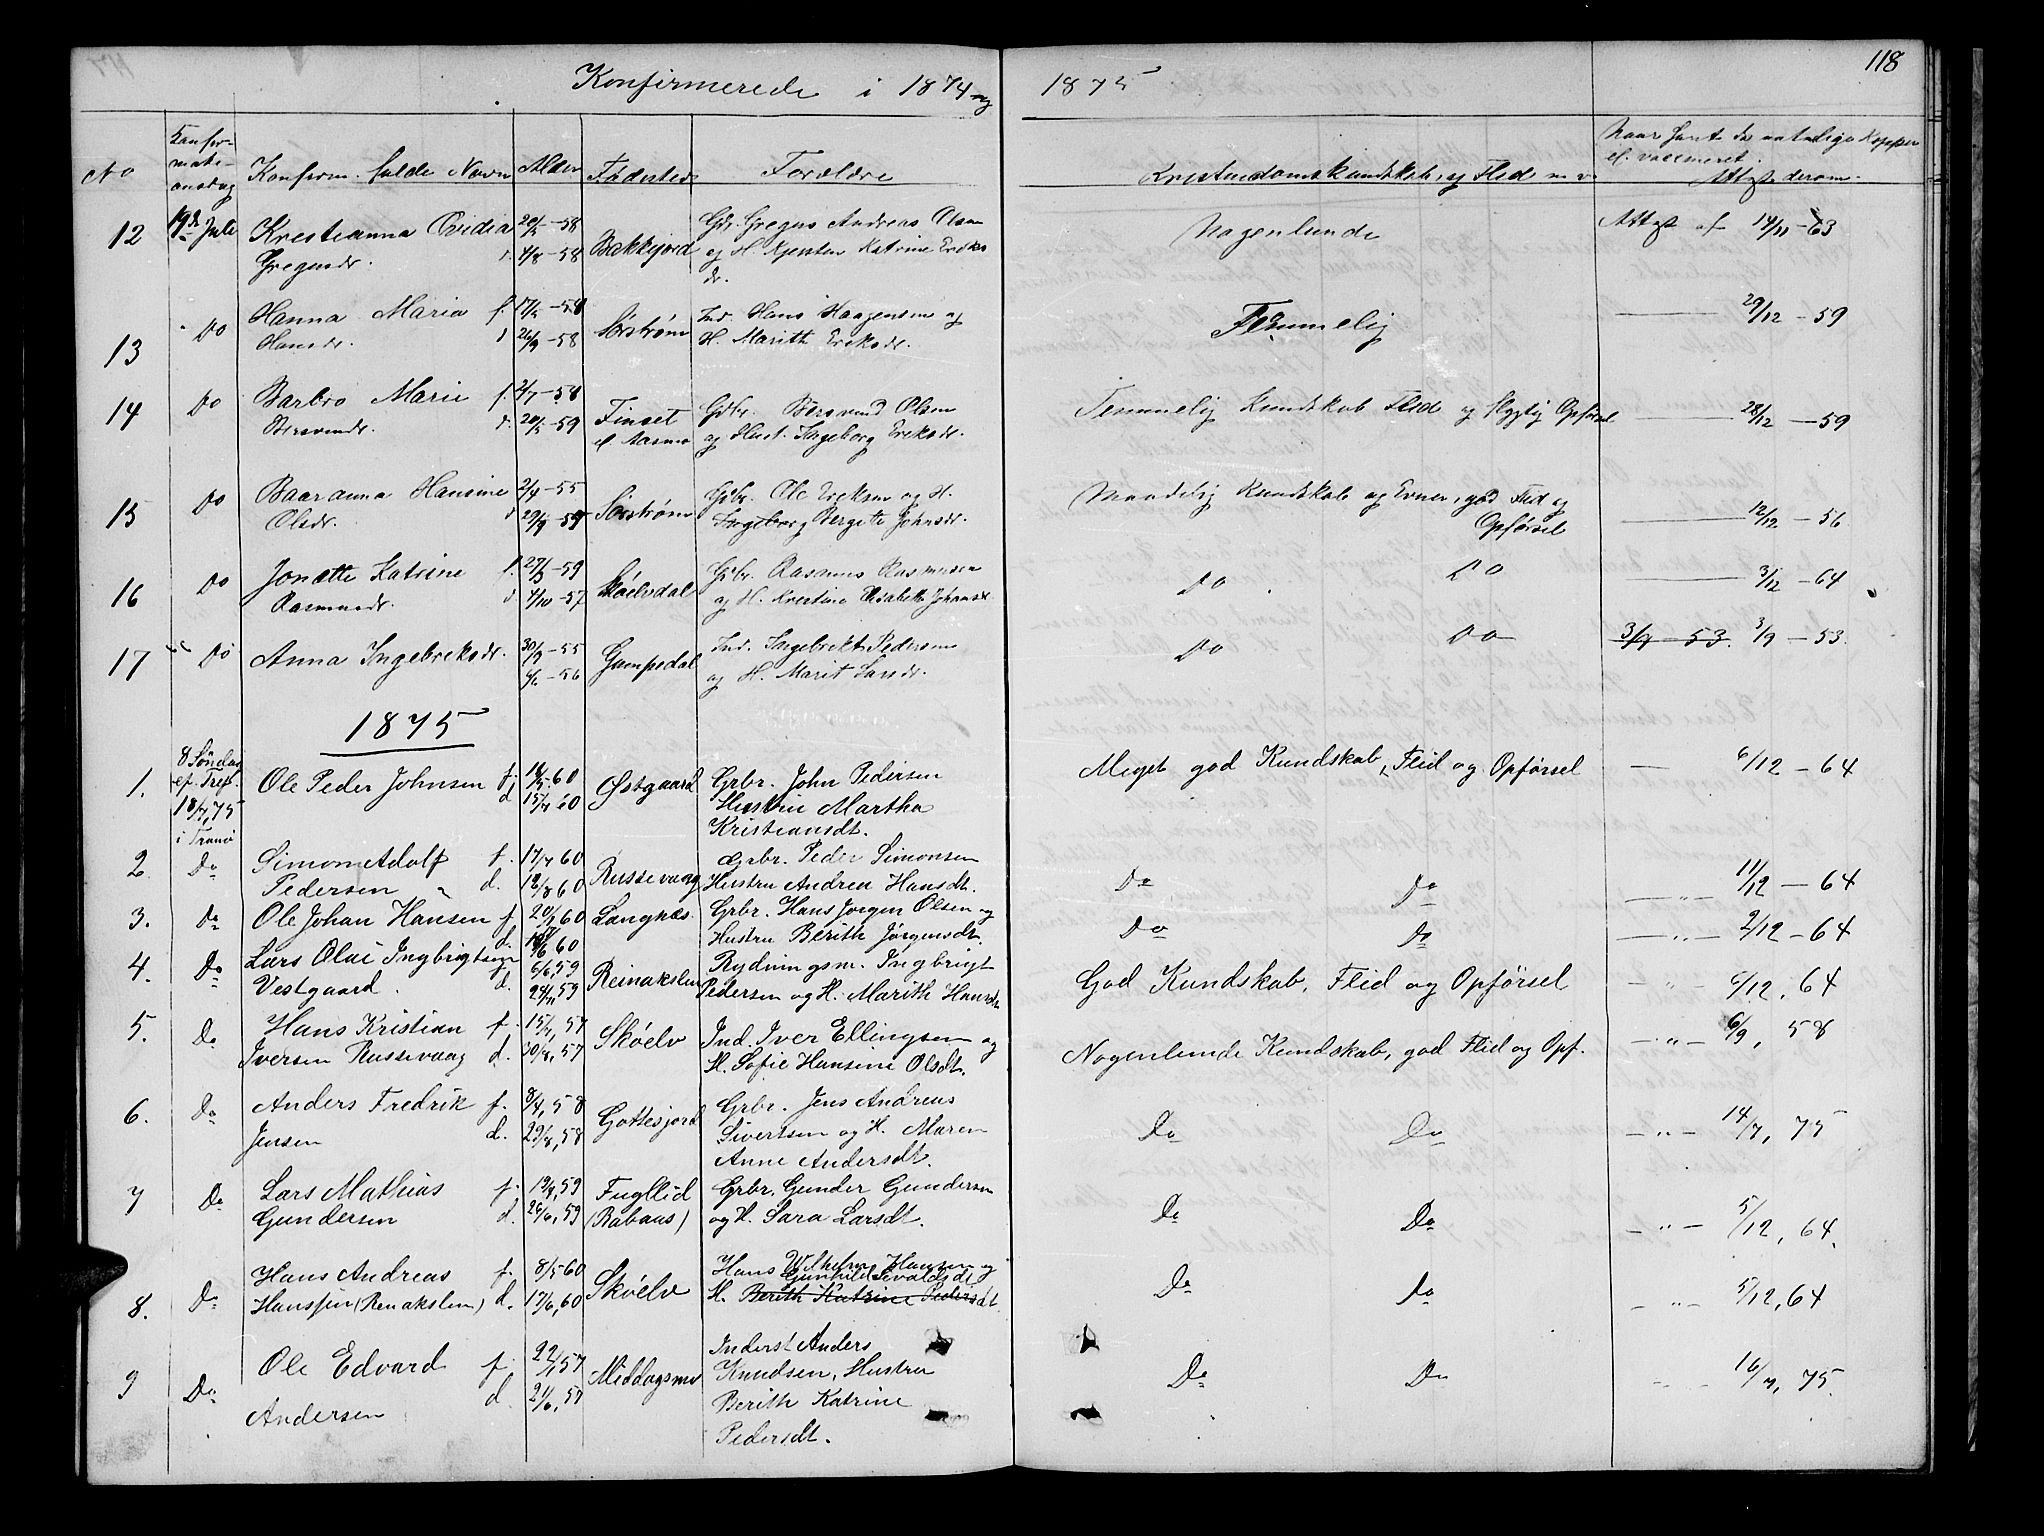 118
Konfirmerede i 1874 og 1875
No
Konfir-
mati-
onsdag
Konfirm. fulde Navn
Alder
Fødested
Forældre
Kristendomskundskab, og Flid m. v.
Naar havt de naturlige Kopper
el. vaccineret.
Attest derom.
12 19de Juli Krestianna Ovidia 20/5-58 Bakkejord Gbr. Gregus Andreas Olsen Nogenlunde Attest af 14/11-63
Gregusdr. 1/8-58 og H. Kjersten Katrine Ereks
dr.
13 Do Hanna Maria f. 17/5-58 Sørstrøm Ind. Hans Haagensen og Temmelig 29/12-59
Hansdr. d 26/9-58 H. Marith Ereksdr.
14 Do Barbro Marie f. 2/7-58 Finset Gbr. Bersvend Olsen Temmelig Kundskab Flid og Opførsel 28/12-59
Bersvendr. d. 20/5-59 og Hust. Ingeborg Ereksdr.
15 Do Baaranna Hansine 2/4-55 Sørstrøm Gbr. Ole Ereksen og H. Maadelig Kundskab og Evner, god Flid og
Olsdr. d 29/9 Ingeborg Bergitte Johnsdr. Opførsel 12/12-56
16 Do Jonette Katrine f. 27/3-59 Skøelvdal Gbr. Rasmus Rasmussen Do Do 3/12-64
Rasmusdr. d 4/10-57 og H. Krestine Elisabeth Johansdr
17 Do Anna Ingebreksdr. 30/9-55 Gumpedal Ind. Ingebrekt Pedersen Do Do 3/9-53. 3/9-53.
6/6-56 og H. Marit Larsdr.
1875
1. 8 Søndag Ole Peder Johnsen f. 60 Østgaard Grbr. John Pedersen Meget god Kundskab, Flid og Opførsel — 6/12-64
ef. Tref. d 15/4 60 Hustru Martha
18/7,75 Kristiansdt.
i Tranø
2. Do Simon Adolf f. 17/7 60 Russevaag Grbr. Peder Simonsen Do Do 11/12-64
Pedersen d. 12/8 60 Hustru Andrea Hansdt.
3. Do Ole Johan Hansen f. 20/1 60 Langnæs Grbr. Hans Jørgen Olsen og Do Do — " — 2/12-64
d. 60 Hustru Berith Jørgensdt.
4. Do Lars Olai Ingbrigtsen 6/6,59 Reinakslen Rydningsm. Ingbrigt God Kundskab, Flid og Opførsel - " - 6/12, 64
Vestgaard. d. 24/11,59 Pedersen og H. Marith Hansdt
5. Do Hans Kristian f. 15/7, 57 Skøelv Ind. Iver Ellingsen og Nogenlunde Kundskab, god Flid og Opf. — " — 6/9, 58
Iversen Russevaag d. 30/8, 57 H. Sofie Hansine Olsdt.
6. Do Anders Fredrik f. 8/4, 58 Gottesjord Grbr. Jens Andreas Do Do — " — 14/7, 75
Jensen d. 29/8, 58 Sivertsen og H. Maren
Anne Andersdt.
7 Do Lars Mathias f. 19/4, 59 Fugllid Grbr. Gunder Gundersen Do Do - " - 5/12, 64.
Gundersen d. 26/6, 59 (Rabaas) og H. Sara Larsdt.
8. Do Hans Andreas f. 8/5 60 Skøelv Hans Wilhelm Hansen og Do Do - " - 5/12, 64
Gunhild Sivaldsdt
Hansen (Renakslen) d. 17/6, 60 H. Berith Katrine Pedersdt.
9 Do Ole Edvard f. 22/1 57 Middagsnes Inderst Anders Do Do - " - 16/7, 75.
Andersen d. 21/6, 57 Knudsen, Hustru
Berith Katrine
Pedersdt.